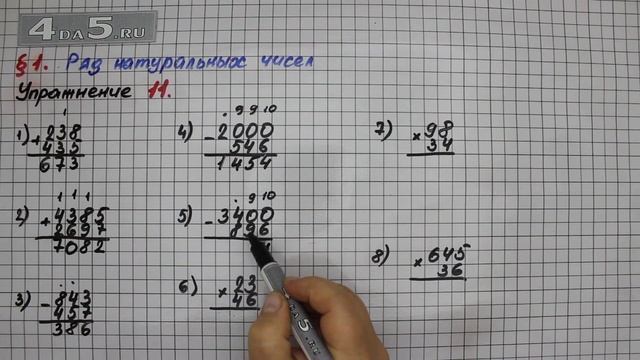 4DA5.RU
§1. Ряд натуральных чисел
Упражнение 11.
1
1) + 238
435
673
1 1 1
2) + 4385
2697
7082
. .
3) - 843
457
386
. 9 9 10
4) - 2000
546
1454
. 9 10
5) - 3400
896
6) × 23
46
7) × 98
34
8) × 645
36